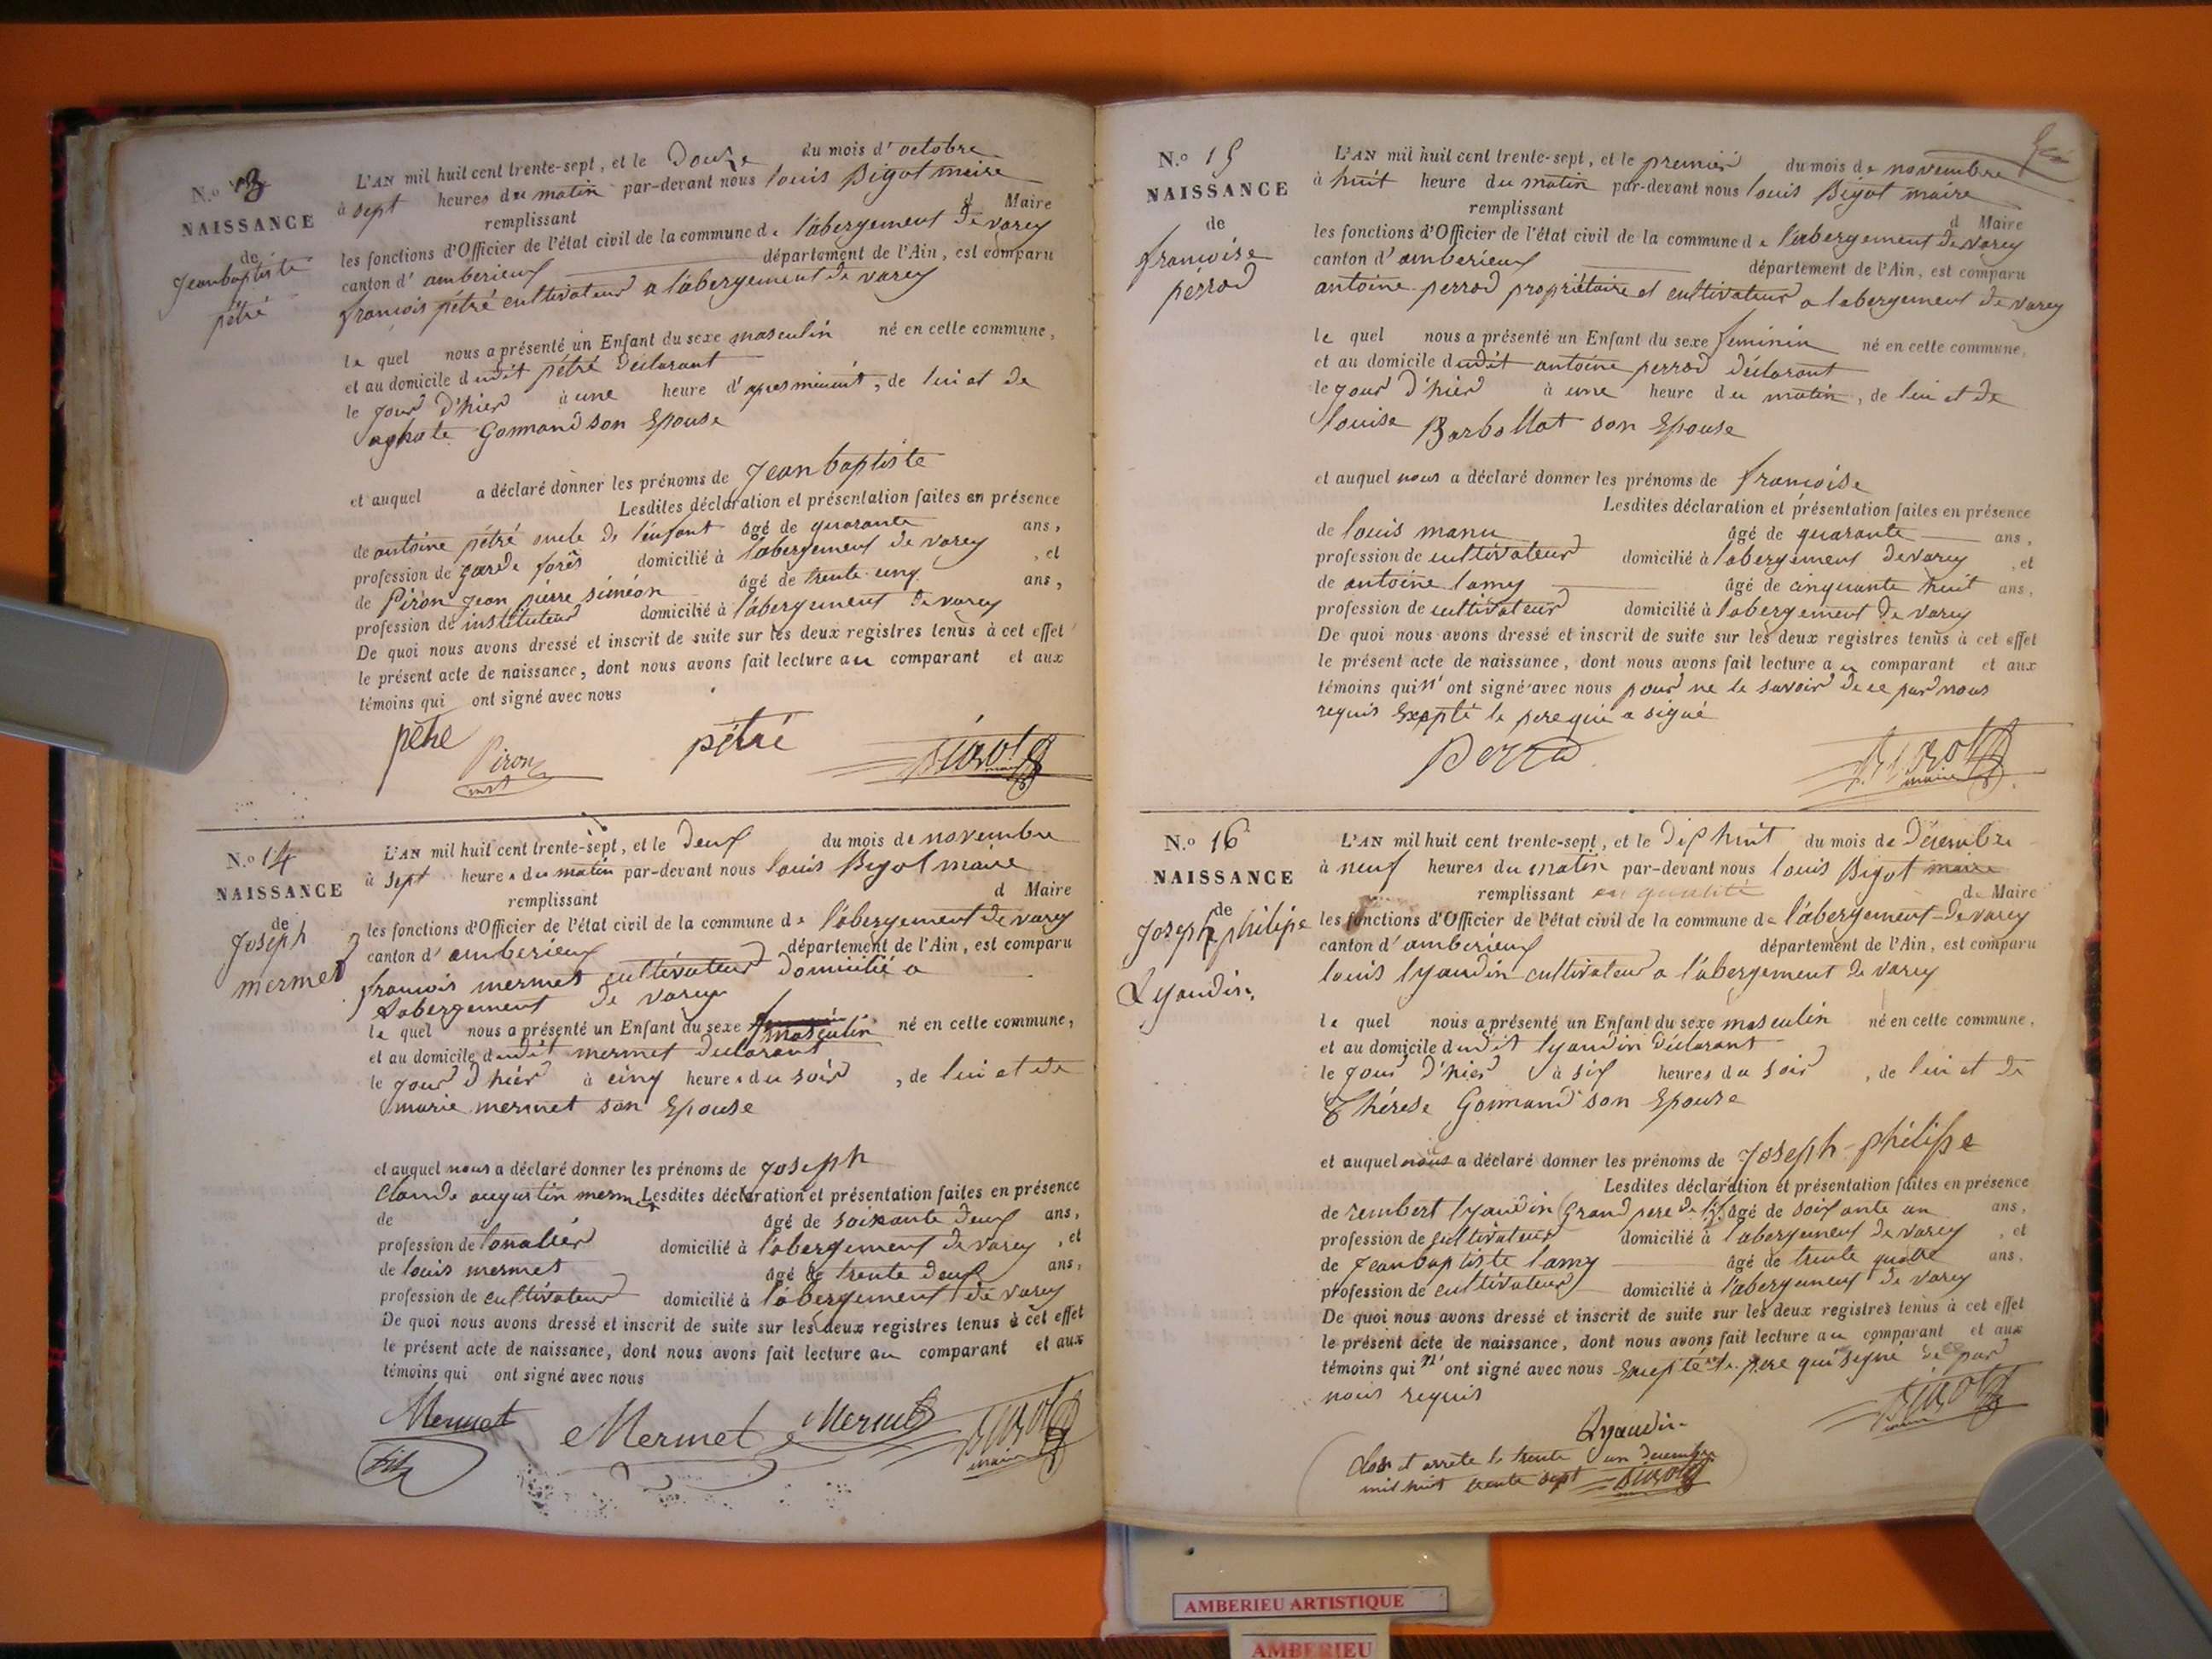 N.o 13
NAISSANCE
de
Jeanbaptiste
pétré
L'AN mil huit cent trente-sept, et le Douze du mois d'octobre
à sept heures du matin par-devant nous louis Bigot maire
remplissant d Maire
les fonctions d'Officier de l'état civil de la commune de l'abergement de varey
canton d'amberieux département de l'Ain, est comparu
francois pétré cultivateur a l'abergement de varey
le quel nous a présenté un Enfant du sexe masculin né en celle commune,
et au domicile dudit pétré déclarant
le jour d'hier à une heure d'apres minuit, de lui et de
aghate Gormand son Epouse
et auquel a déclaré donner les prénoms de Jean baptiste
Lesdites déclaration et présentation faites en présence
de antoine pétré oncle de l'enfant âgé de quarante ans,
profession de garde forês domicilié à l'abergement de varey, et
de Piron jean pierre siméon âgé de trente cinq ans,
profession de instituteur domicilié à l'abergement de varey
De quoi nous avons dressé et inscrit de suite sur les deux registres tenus à cet effet
le présent acte de naissance, dont nous avons fait lecture au comparant et aux
témoins qui ont signé avec nous
pétré Piron pétré Bigot
maire
N.o 14
NAISSANCE
de
Joseph
mermet
L'AN mil huit cent trente-sept, et le Deux du mois de novembre
à sept heures du matin par-devant nous louis Bigot maire
remplissant d Maire
les fonctions d'Officier de l'état civil de la commune de l'abergement de varey
canton d'amberieux département de l'Ain, est comparu
francois mermet cultivateur domicilié a
Labergement de varey
le quel nous a présenté un Enfant du sexe masculin né en celle commune,
et au domicile dudit mermet declarant
le jour d'hier à cinq heures du soir, de lui et de
marie mermet son Epouse
et auquel nous a déclaré donner les prénoms de Joseph
Claude augustin mermet Lesdites déclaration et présentation faites en présence
de âgé de soixante deux ans,
profession de tonalier domicilié à l'abergement de varey, et
de louis mermet âgé de trente deux ans,
profession de cultivateur domicilié à l'abergement de varey
De quoi nous avons dressé et inscrit de suite sur les deux registres tenus à cet effet
le présent acte de naissance, dont nous avons fait lecture au comparant et aux
témoins qui ont signé avec nous
Mermet Mermet Mermet Bigot
fils maire
N.o 15
NAISSANCE
de
francoise
perrod
L'AN mil huit cent trente-sept, et le premier du mois de novembre
à huit heure du matin par-devant nous louis Bigot maire
remplissant d Maire
les fonctions d'Officier de l'état civil de la commune de l'abergement de varey
canton d'amberieux département de l'Ain, est comparu
antoine perrod propriétaire et cultivateur a labergement de varey
le quel nous a présenté un Enfant du sexe feminin né en celle commune,
et au domicile dudit antoine perrod déclarant
le jour d'hier à une heure du matin, de lui et de
louise Barbollat son Epouse
et auquel nous a déclaré donner les prénoms de francoise
Lesdites déclaration et présentation faites en présence
de louis manu âgé de quarante ans,
profession de cultivateur domicilié à labergement de varey, et
de antoine lamy âgé de cinquante huit ans,
profession de cultivateur domicilié à labergement de varey
De quoi nous avons dressé et inscrit de suite sur les deux registres tenus à cet effet
le présent acte de naissance, dont nous avons fait lecture au comparant et aux
témoins qui n'ont signé avec nous pour ne le savoir de ce par nous
requis Exepté le pere qui a signé
Perrod Bigot
maire
N.o 16
NAISSANCE
de
Joseph philipe
Lyaudin
L'AN mil huit cent trente-sept, et le Dix huit du mois de Décembre
à neuf heures du matin par-devant nous louis Bigot maire
remplissant en qualité de Maire
les fonctions d'Officier de l'état civil de la commune de l'abergement de varey
canton d'amberieux département de l'Ain, est comparu
louis lyaudin cultivateur a l'abergement de varey
le quel nous a présenté un Enfant du sexe masculin né en celle commune,
et au domicile dudit lyaudin déclarant
le jour d'hier à six heures du soir, de lui et de
Thérese Gormand son Epouse
et auquel nous a déclaré donner les prénoms de Joseph-philippe
Lesdites déclaration et présentation faites en présence
de rembert lyaudin (Grand pere de âgé de soixante un ans,
profession de cultivateur domicilié à l'abergement de varey, et
de Jeanbaptiste lamy âgé de trente quatre ans,
profession de cultivateur domicilié à l'abergement de varey
De quoi nous avons dressé et inscrit de suite sur les deux registres tenus à cet effet
le présent acte de naissance, dont nous avons fait lecture au comparant et aux
témoins qui n'ont signé avec nous Excepté le pere qui signé de par
nous requis
Lyaudin Bigot
maire
Clos et arrete le trente un decembre
mil huit trente sept Bigot
AMBERIEU ARTISTIQUE
AMBERIEU